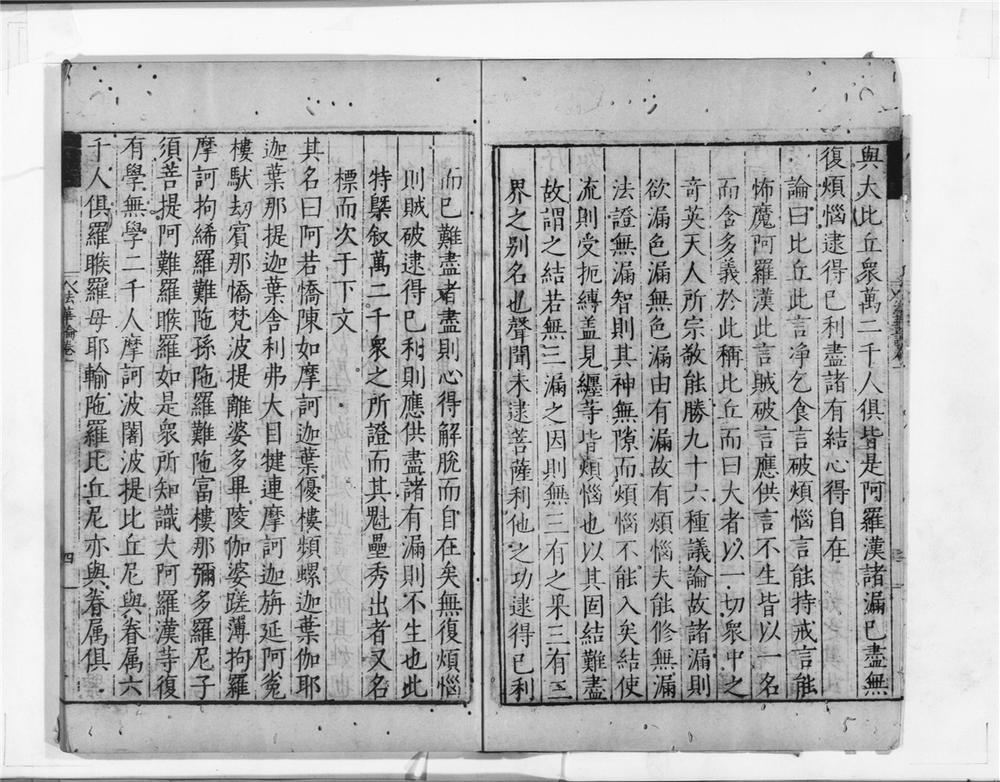 與大比丘衆萬二千人俱皆是阿羅漢諸漏已盡無
復煩惱逮得已利盡諸有結心得自在
論曰比丘此言淨乞食言破煩惱言能持戒言能
怖魔阿羅漢此言賊破言應供言不生皆以一名
而含多義於此稱比丘而曰大者以一切衆中之
竒英天人所宗敬能勝九十六種議論故諸漏則
欲漏色漏無色漏由有漏故有煩惱夫能修無漏
法證無漏智則其神無隙而煩惱不能入矣結使
流則受扼縛盖見纒等皆煩惱也以其固結難盡
故謂之結若無三漏之因則無三有之果三有三
界之别名也聲聞未逮菩薩利他之功逮得已利
而已難盡者盡則心得解脫而自在矣無復煩惱
則賊破逮得已利則應供盡諸有漏則不生也此
特槩叙萬二千衆之所證而其魁壘秀出者又名
標而次于下文
其名曰阿若憍陳如摩訶迦葉優樓頻螺迦葉伽耶
迦葉那提迦葉舍利弗大目揵連摩訶迦旃延阿㝹
樓馱劫賓那憍梵波提離婆多畢陵伽婆蹉薄拘羅
摩訶拘絺羅難陁孫陁羅難陁富樓那彌多羅尼子
須菩提阿難羅睺羅如是衆所知識大阿羅漢等復
有學無學二千人摩訶波闍波提比丘尼與眷属六
千人俱羅睺羅母耶輸陁羅比丘尼亦與眷属俱
法華論卷一
四